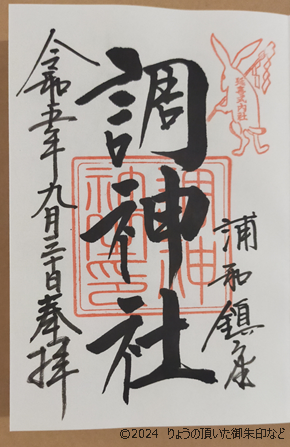 延喜式内社
浦和鎮座
調神社
令和五年九月三十日奉拝
©2024 りょうの頂いた御朱印など